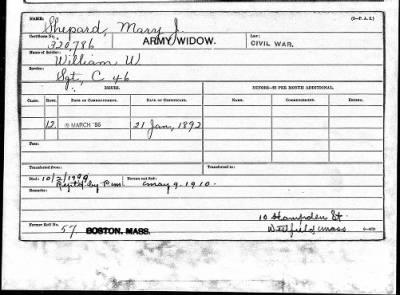 NAME: Shepard, Mary J. (3-P.A.I.)
Certificate No. 320,786 ARMY/WIDOW. Law: CIVIL WAR.
Name of Soldier: William W
Service: Sgt, C 46
ISSUES. MINORS—$2 PER MONTH ADDITIONAL.
CLASS. RATE. DATE OF COMMENCEMENT. DATE OF CERTIFICATE. NAME. COMMENCED. ENDING.
12 MARCH '86 21 Jan, 1892
Fees:
Transferred from: Transferred to:
Died: 10/2/1909
Remarks: May 9-1910.
10 Hampden St
Former Roll No. 57 BOSTON. MASS. Westfield Mass